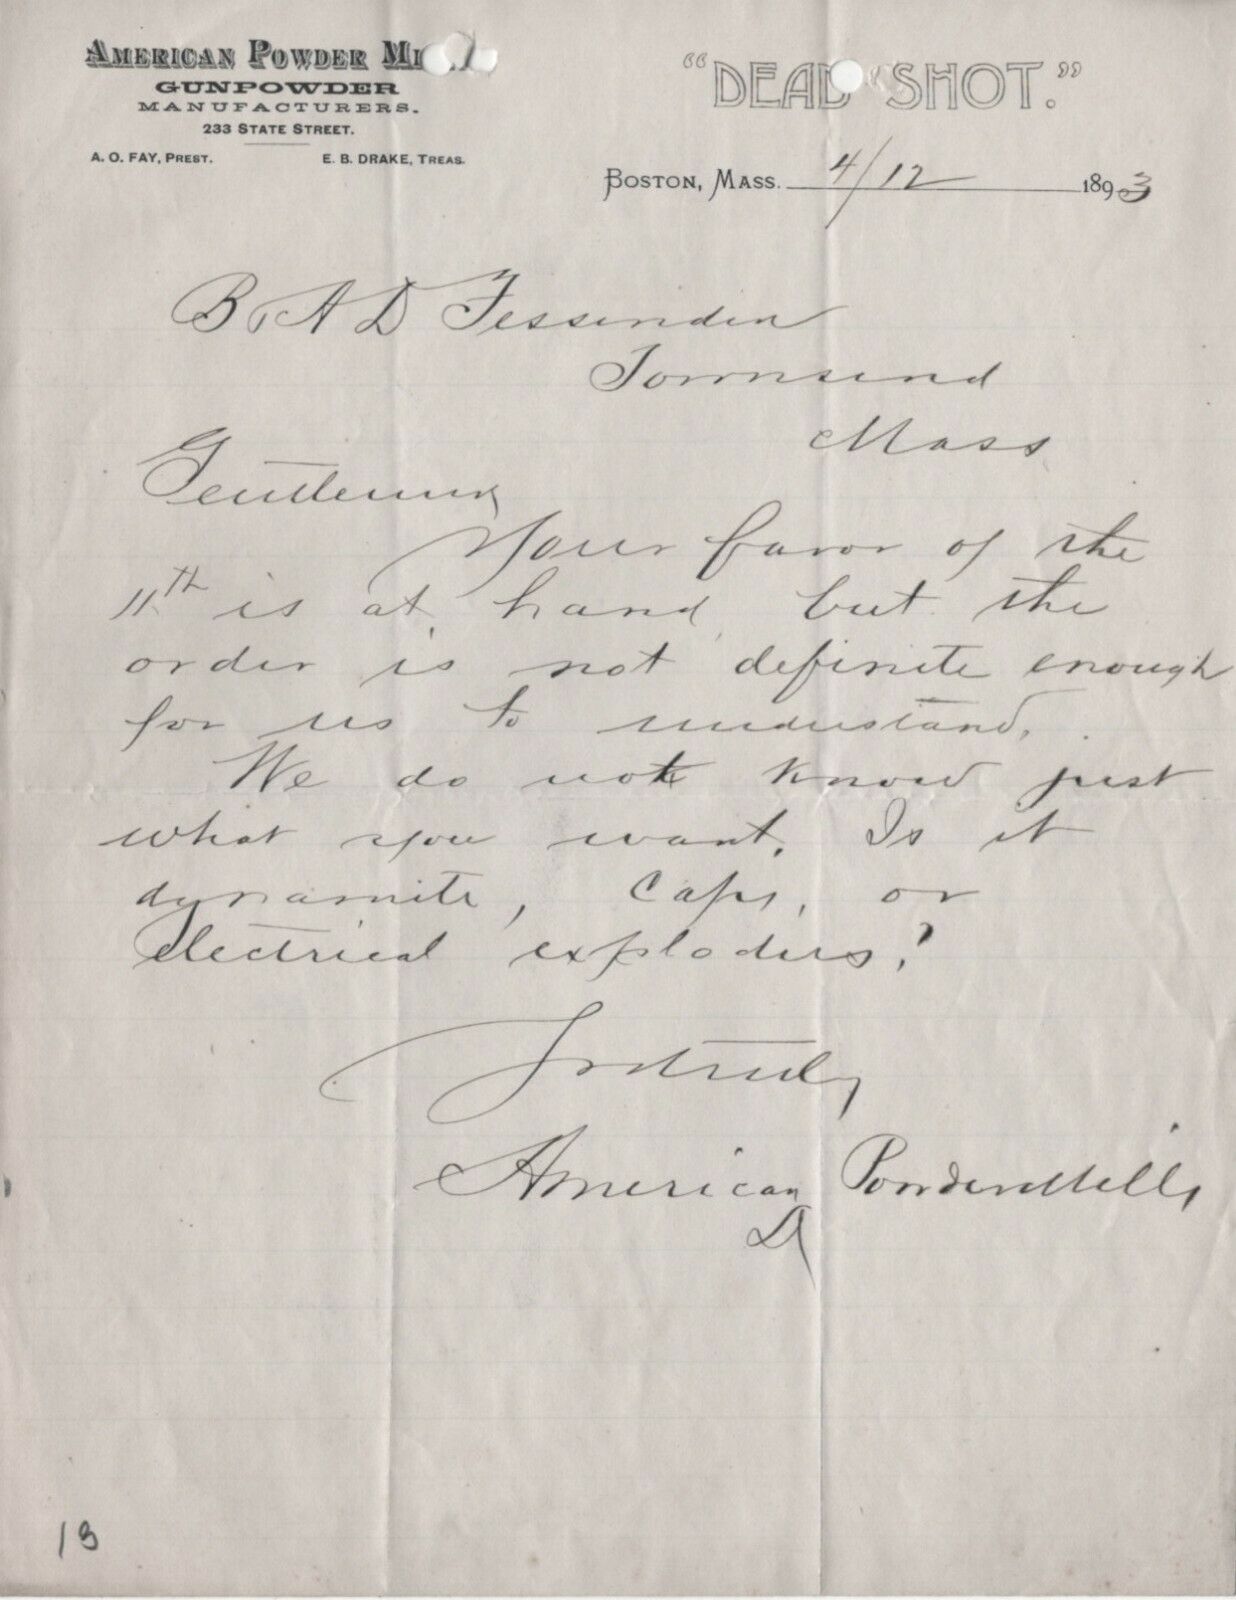 AMERICAN POWDER MI
GUNPOWDER
MANUFACTURERS.
233 STATE STREET.
A. O. FAY, PREST. E. B. DRAKE, TREAS.
"DEAD SHOT."
BOSTON, MASS. 4/12 1893
B & A D Fessenden
Townsend
Mass
Gentlemen
Your favor of the
11th is at hand, but the
order is not definite enough
for us to understand.
We do not know just
what you want. Is it
dynamite, caps, or
electrical exploders?
Yrs truly
American Powder Mills
D
13